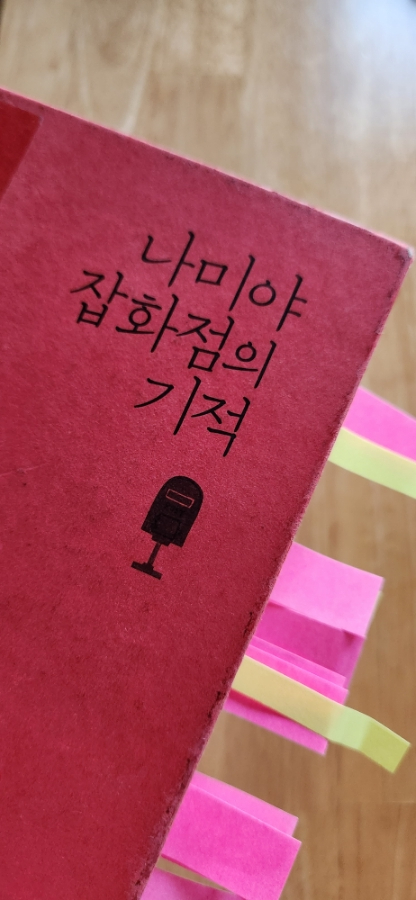 나미야
잡화점의
기적